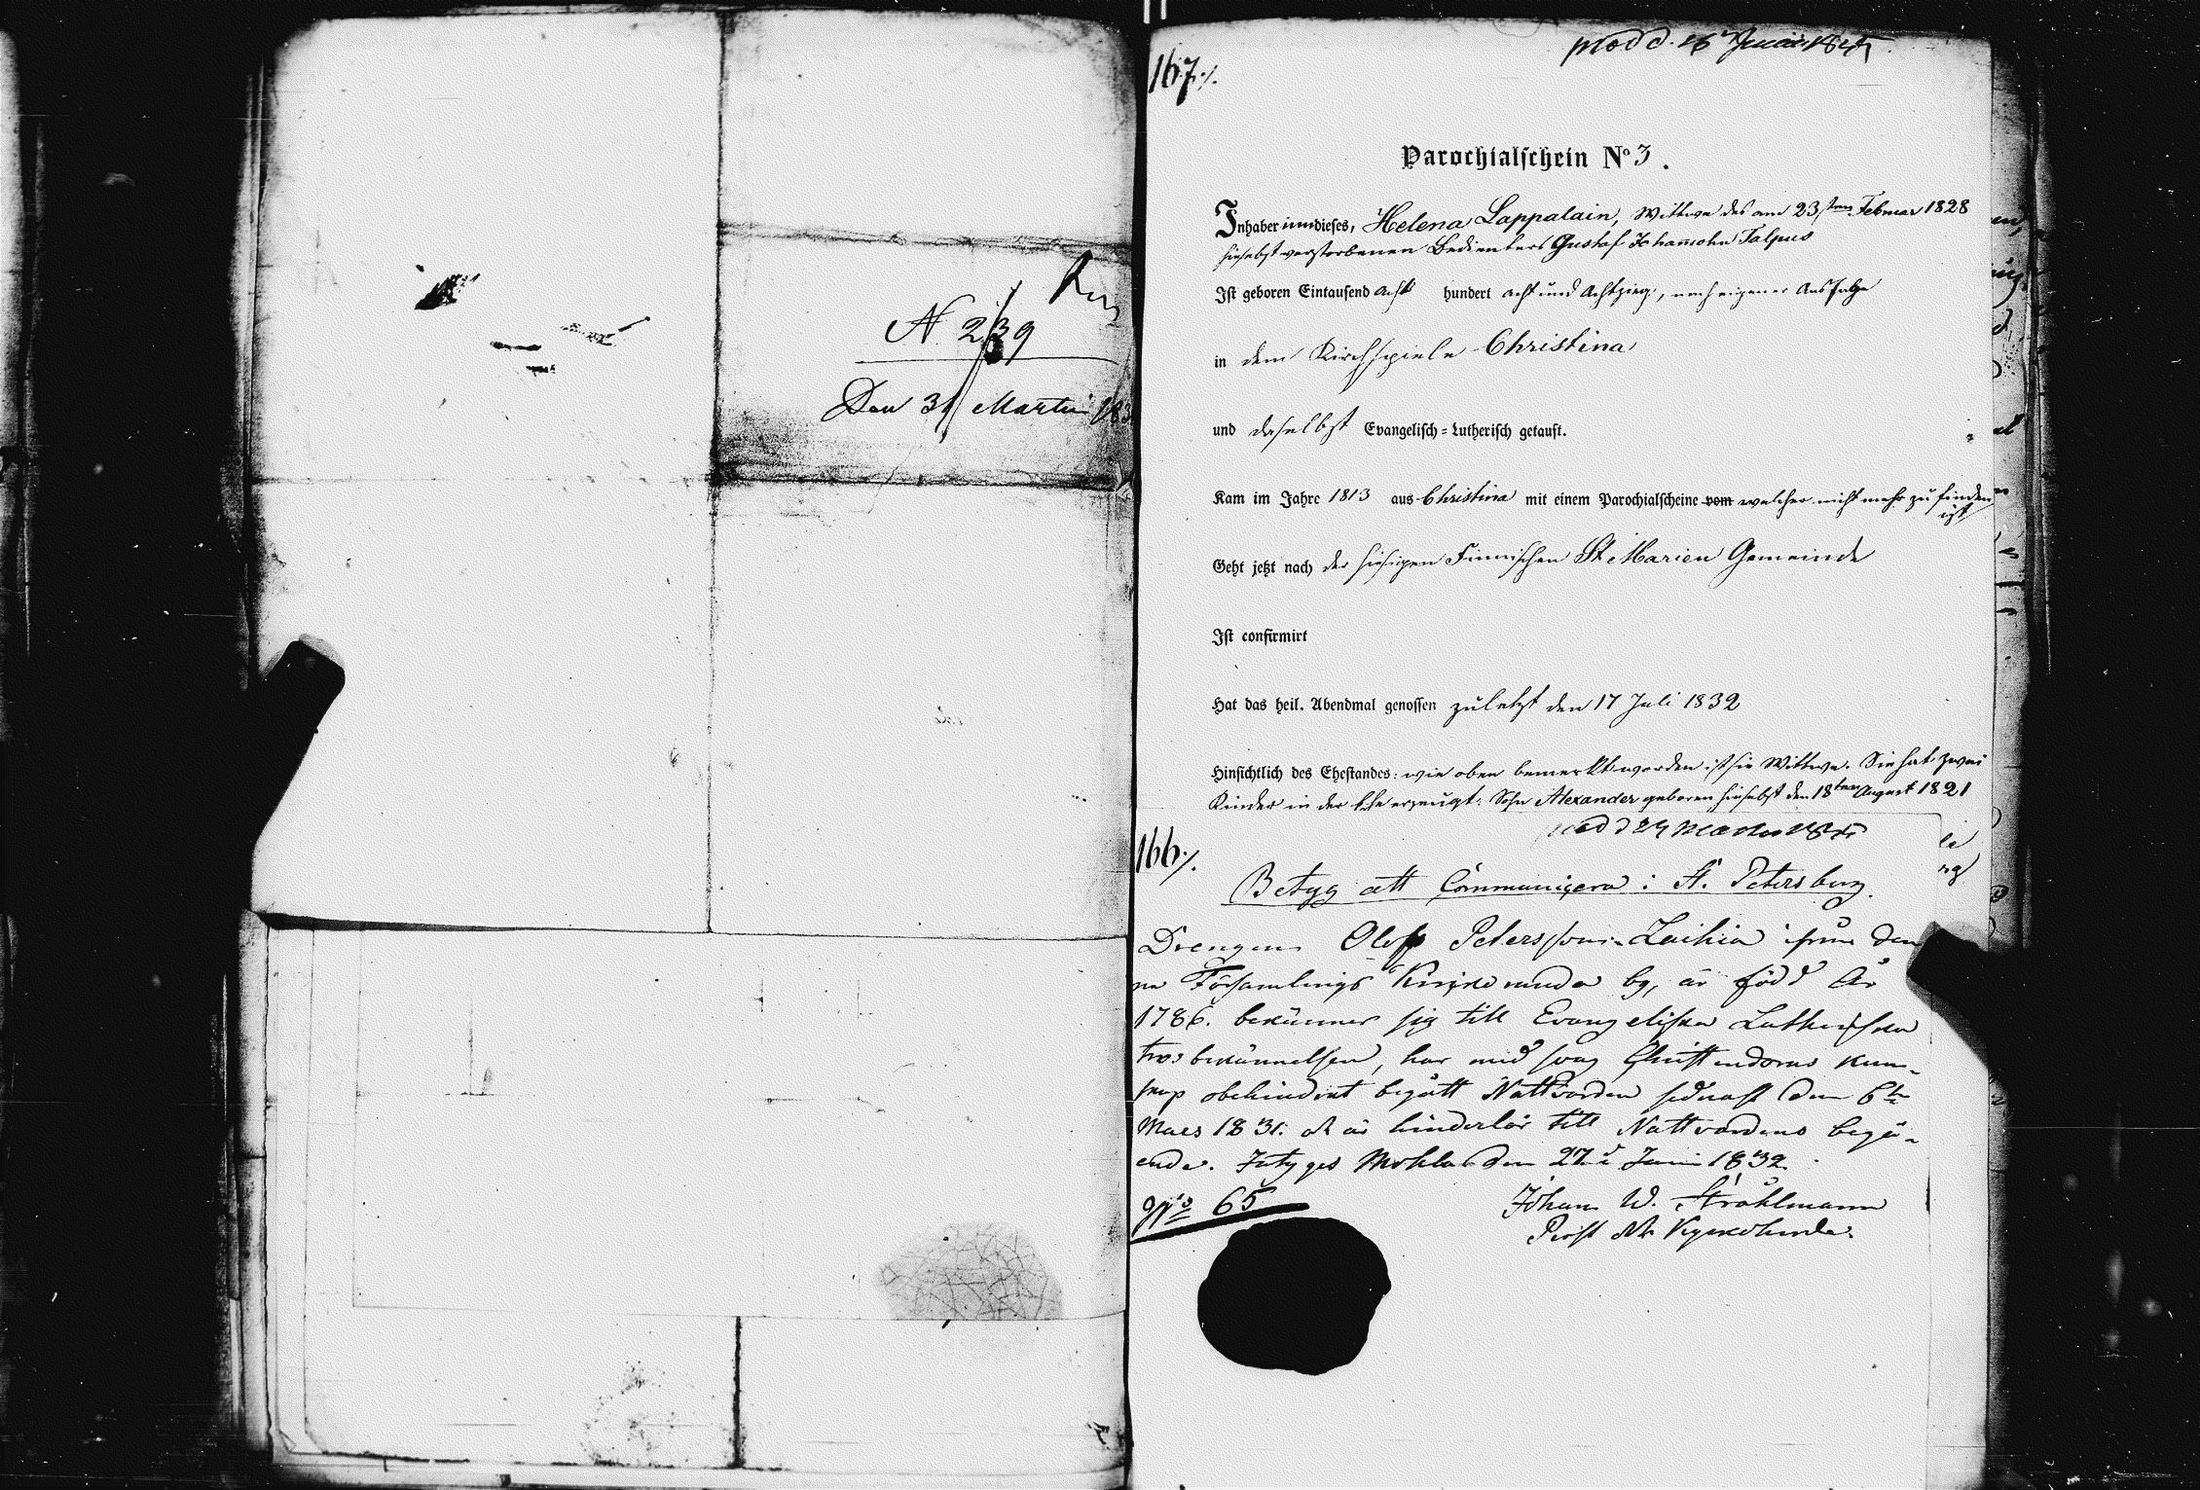 N 239
Den 31 Martii 183
167./.
prod d. 26 Junii
Parochialschein No 3.
Inhaberinn dieses, Helena Lappalain, Wittwe des am 23sten Februar 1828
hieselbst verstorbenen Bedienters Gustaf Johannsohn Talpus
Ist geboren Eintausend acht hundert acht und achtzig, nach eigener Aussage
in dem Kirchspiele Christina
und daselbst Evangelisch=Lutherisch getauft.
Kam im Jahre 1813 aus Christina mit einem Parochialscheine vom welcher nicht mehr zu finden
ist
Geht jetzt nach der hiesigen Finnischen St Marien Gemeinde
Ist confirmirt
Hat das heil. Abendmal genossen zuletzt den 17 Juli 1832
Hinsichtlich des Ehestandes: wie oben bemerkt worden ist sie Wittwe. Sie hat zwei
Kinder in der Ehe erzeugt: Sohn Alexander geboren hieselbst den 18ten August 1821
166./.
Betyg att Communicera i St. Petersburg
Drengen Oloff Petersson Laihia ifrån den
na Församlings by, är född År
1786. bekänner sig till Evangeliska Lutherska
trosbekännelsen, har med svag Christendoms kun-
skap obehindrat begått Nattvarden sednast den 6te
Mars 1831. och är hinderlös till Nattvardens begå-
ende. Intygas Mohla den 27de Juni 1832.
No 65
Johan W. Stråhlmann
Prost och Kyrkoherde.